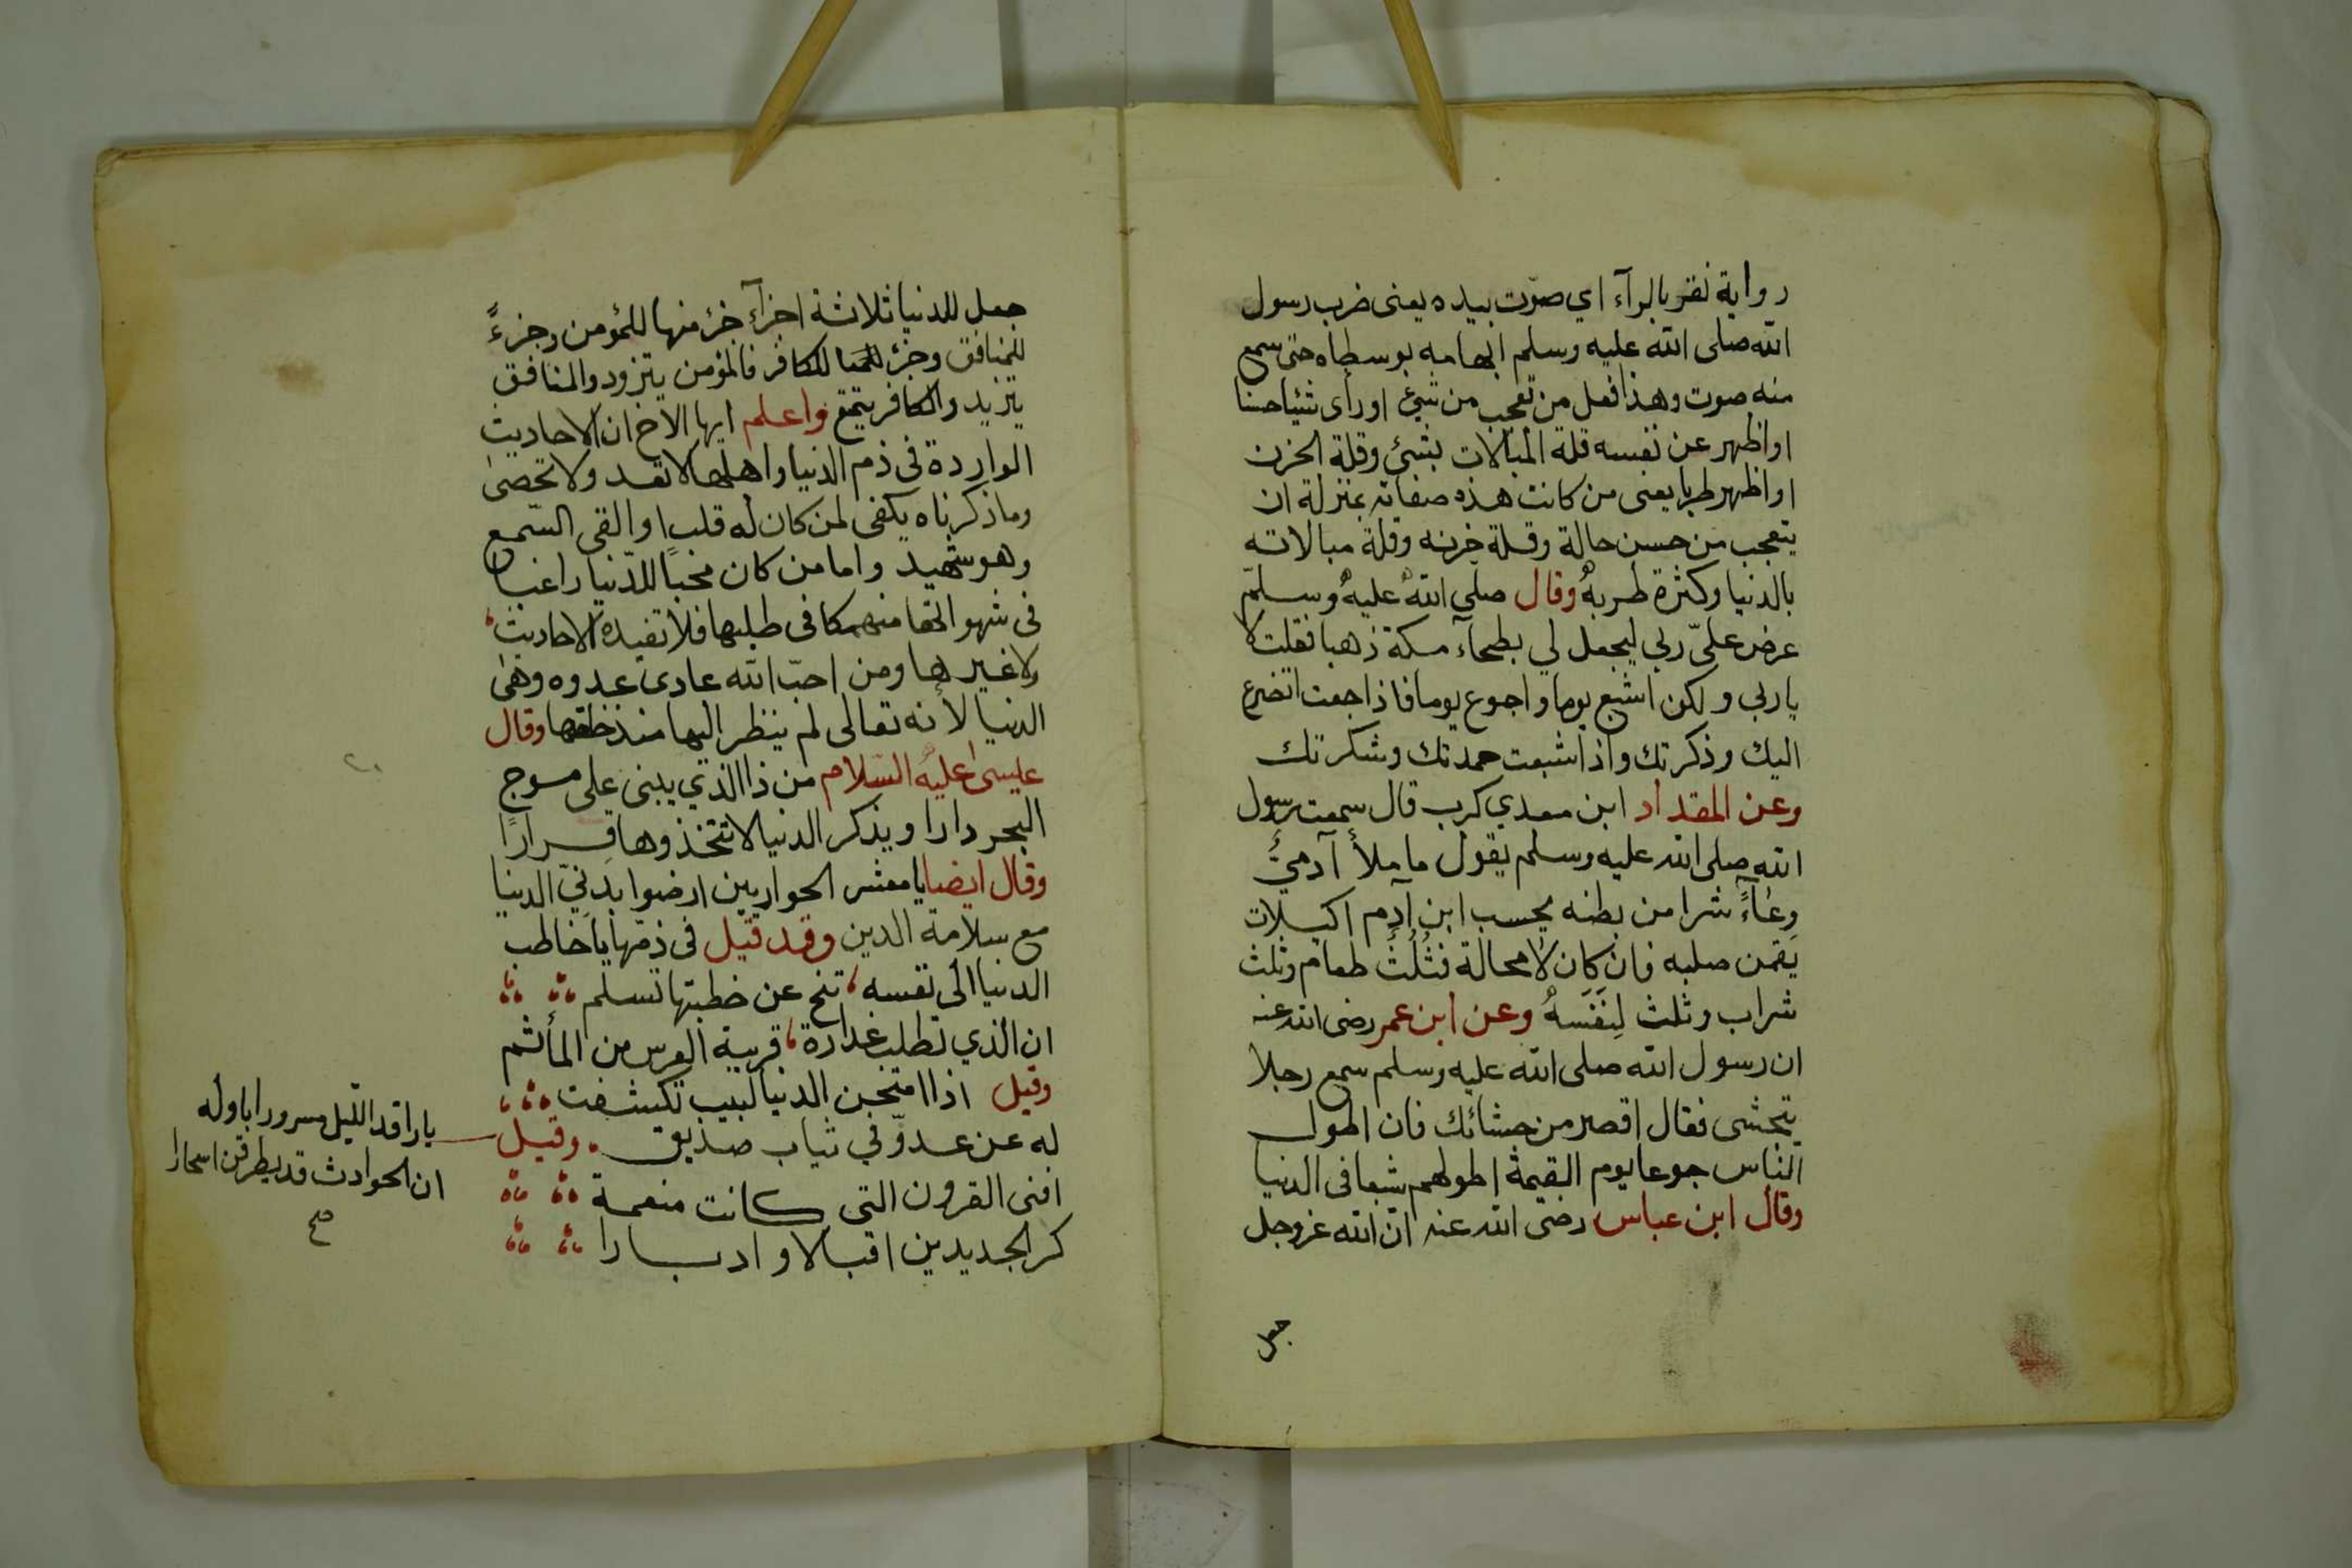 رواية نقر بالرآء اي صوّت بيده يعنى ضرب رسول
الله صلى الله عليه وسلم ابهامه بوسطاه حتى سمع
منه صوت وهذا فعل من تعجب من شيء اورأى شيئاحسنا
اواظهر عن نفسه قلة المبالات بشيء وقلة الحزن
اواظهر طربا يعنى من كانت هذه صفاته بمنزلة ان
يتعجب من حسن حالة وقلة حزنه وقلة مبالاته
بالدنيا وكثرة طربه وقال صلى الله عليه وسلم
عرض علىّ ربي ليجعل لي بطحآء مكة ذهبا فقلت لا
يا ربي ولكن اشبع يوما واجوع يوما فاذا جعت اتضرع
اليك وذكرتك واذا شبعت حمدتك وشكرتك
وعن المقداد ابن معدي كرب قال سمعت رسول
الله صلى الله عليه وسلم يقول ما ملأ آدميٌ
وعآءً شرا من بطنه بحسب ابن آدم اكيلات
يقمن صلبه فان كان لا محالة فثُلُثٌ طعام وثلث
شراب وثلث لِنَفَسَهُ وعن ابن عمر رضى الله عنه
ان رسول الله صلى الله عليه وسلم سمع رجلا
يتجشى فقال اقصر من جشائك فان اطول
الناس جوعا يوم القيمة اطولهم شبعا فى الدنيا
وقال ابن عباس رضى الله عنه ان الله عز وجل
جعل
جعل للدنيا ثلاثة اجزآء جزء منها للمؤمن وجزءً
للمنافق وجزء للكافر فالمؤمن يتزود والمنافق
يتزيد والكافر يتمتع واعلم ايها الاخ ان الاحاديث
الواردة فى ذم الدنيا واهلها لا تعد ولا تحصى
وما ذكرناه يكفى لمن كان له قلبا او القى السّمع
وهو شهيد واما من كان محبا للدّنيا راغبا
فى شهواتها منهمكا فى طلبها فلا تفيده الاحاديث
ولا غيرها ومن احبّ الله عادى عدوه وهى
الدنيا لأنه تعالى لم ينظر اليها منذ خلقها وقال
عليسى عليه السّلام من ذا الذي يبنى على موج
البحر دارا ويذكر الدنيا لا تتخذوها قرارًا
وقال ايضا يا معشر الحواريين ارضوا بدنيّ الدنيا
مع سلامة الدين وقد قيل فى ذمّها يا خاطب
الدنيا الى نفسه، تنح عن خطبتها تسلم
ان الذي تطلب غدارة، قريبة العرس من المأتم
وقيل اذا امتحن الدنيا لبيب تكشفت
له عن عدوّ في ثياب صديق. وقيل
افنى القرون التي كانت منعمة
كر الجديدين اقبالا وادبارا
يا راقد الليل مسرورا باوله
ان الحوادث قد يطرقن اسحارا
صح
٢٠